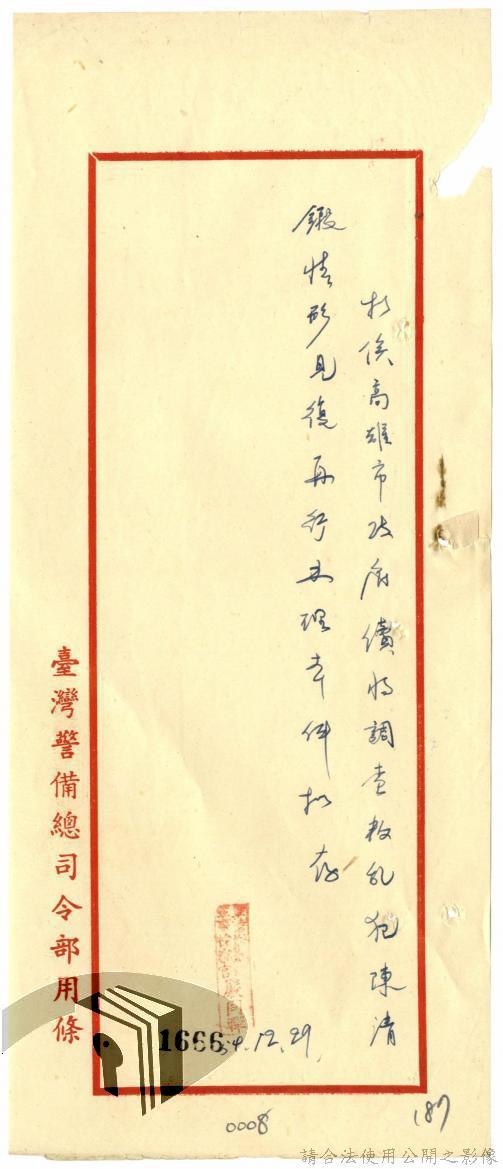 擬俟高雄市政府續將調查叛乱犯陳清
銀情形見復再行办理本件擬存
臺灣警備總司令部用條
1666
54.12.29
0008
187
請合法使用公開之影像